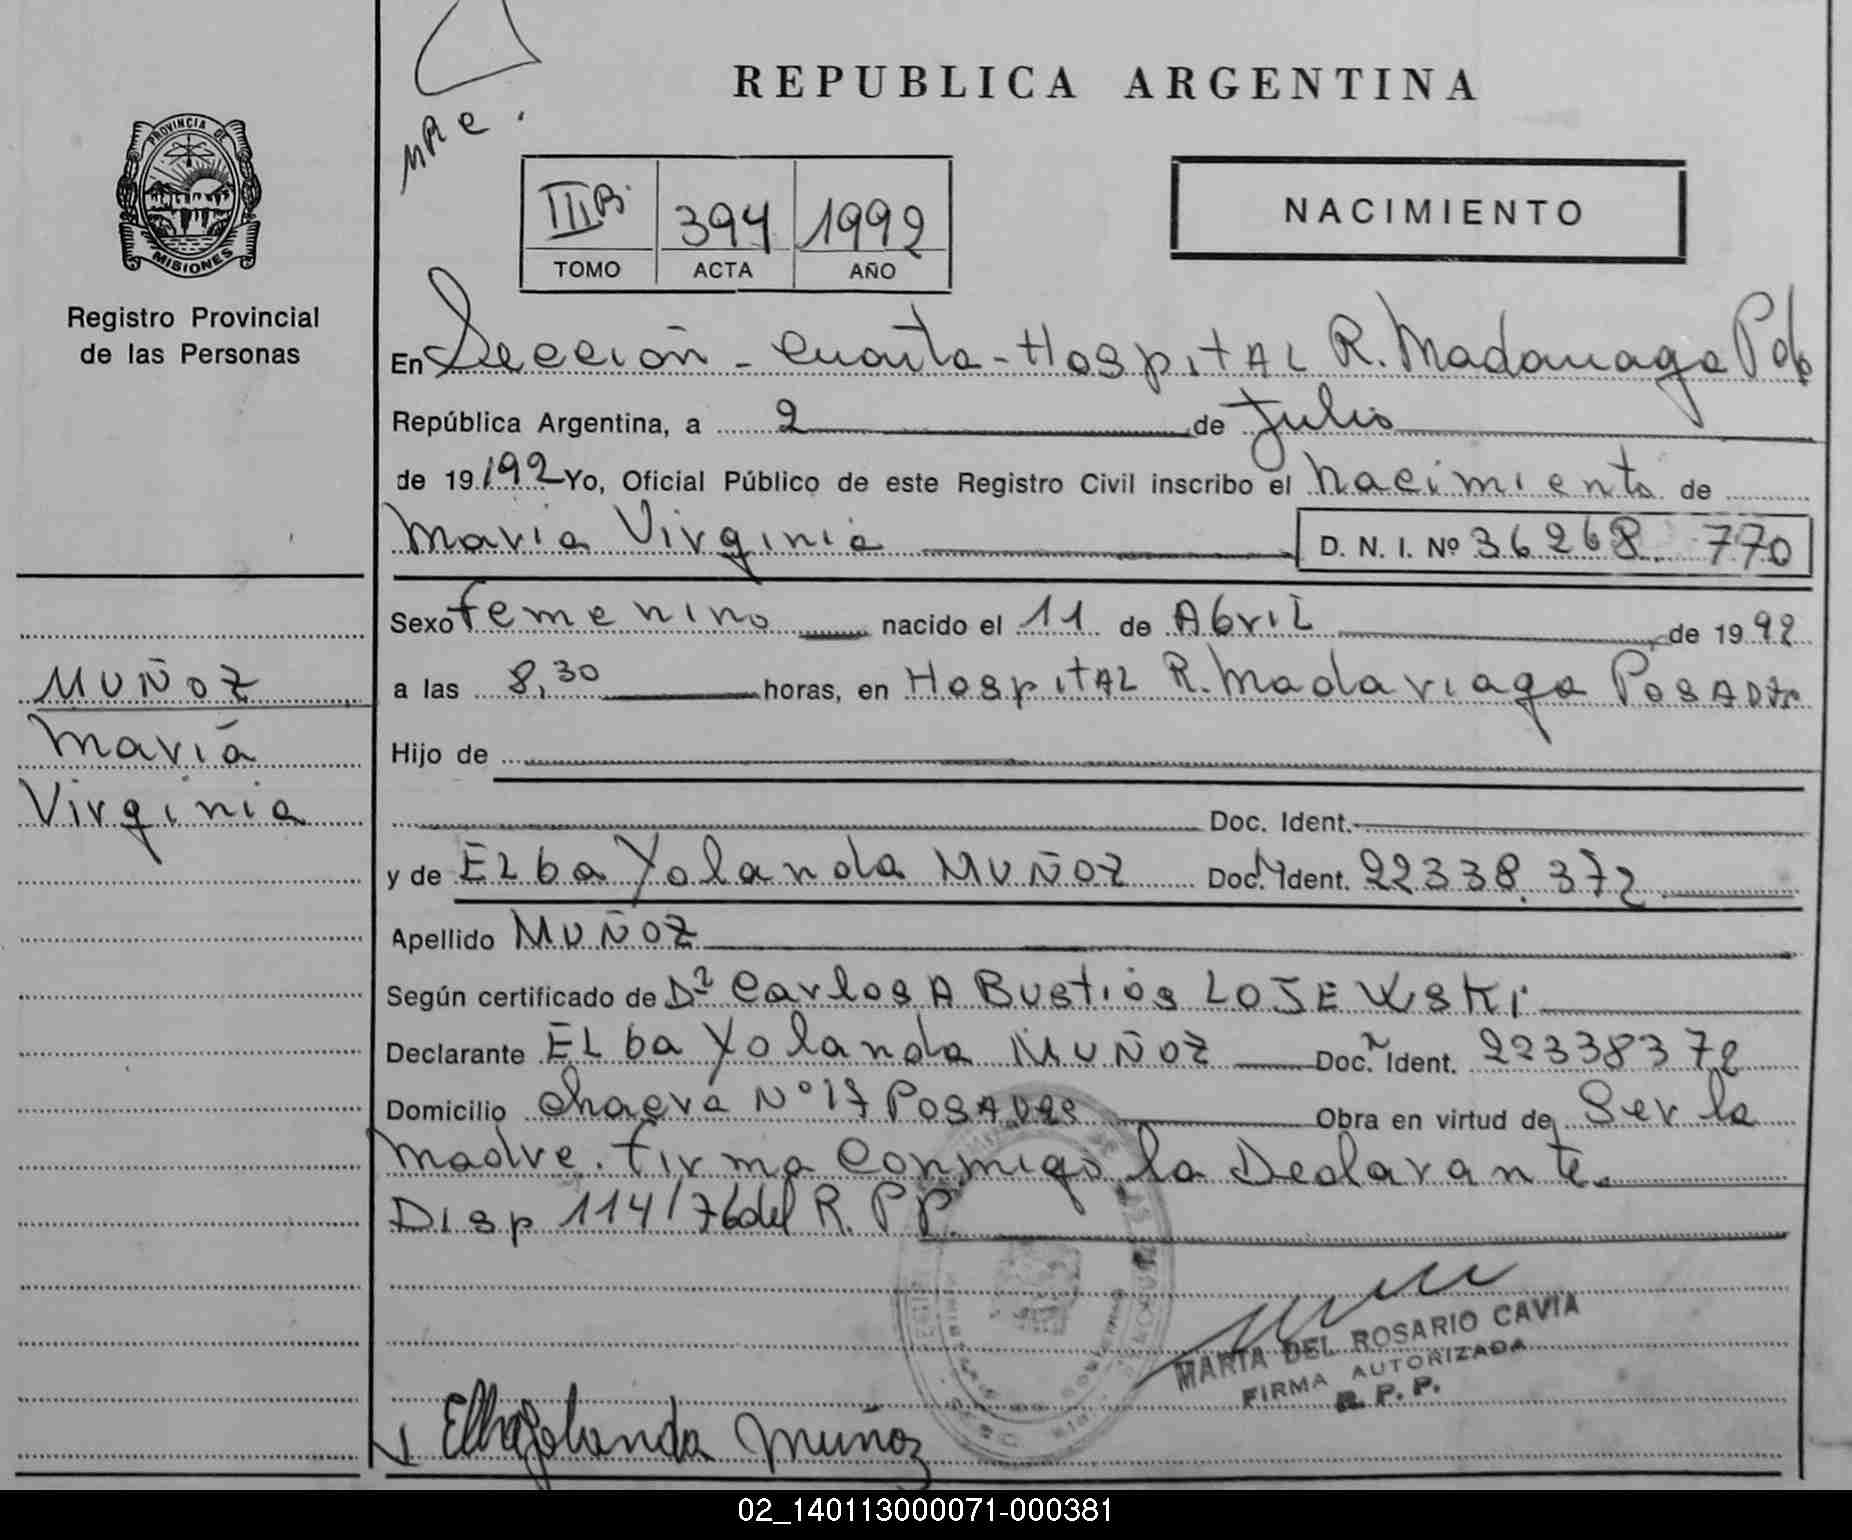 REPUBLICA ARGENTINA
PROVINCIA DE
MISIONES
Registro Provincial
de las Personas
III B
394
1992
TOMO
ACTA
AÑO
NACIMIENTO
En Sección - Cuarta - HospitAL R. Madariaga Pdas
República Argentina, a 2 de Julio
de 19 192 Yo, Oficial Público de este Registro Civil inscribo el Nacimiento de
Maria Virginia D. N. I. Nº 36268.770
Sexo femenino nacido el 11 de AbriL de 1992
a las 8,30 horas, en HospitAL R. Madariaga PosADAs
Hijo de
Doc. Ident.
y de ELba Yolanda MUÑOZ Doc. Ident. 22338.372
Apellido MUÑOZ
Según certificado de Dr Carlos A Bustios LOJEWski
Declarante ELba Yolanda MUÑOZ Doc. Ident. 22338372
Domicilio Chacra Nº 17 POSADAS Obra en virtud de Ser la
Madre. firma Conmigo la Declarante.
Disp 114/76 del R. P P.
MUÑOZ
Mariá
Virginia
MARIA DEL ROSARIO CAVIA
FIRMA AUTORIZADA
R. P. P.
Elba Yolanda Muñoz
02_140113000071-000381